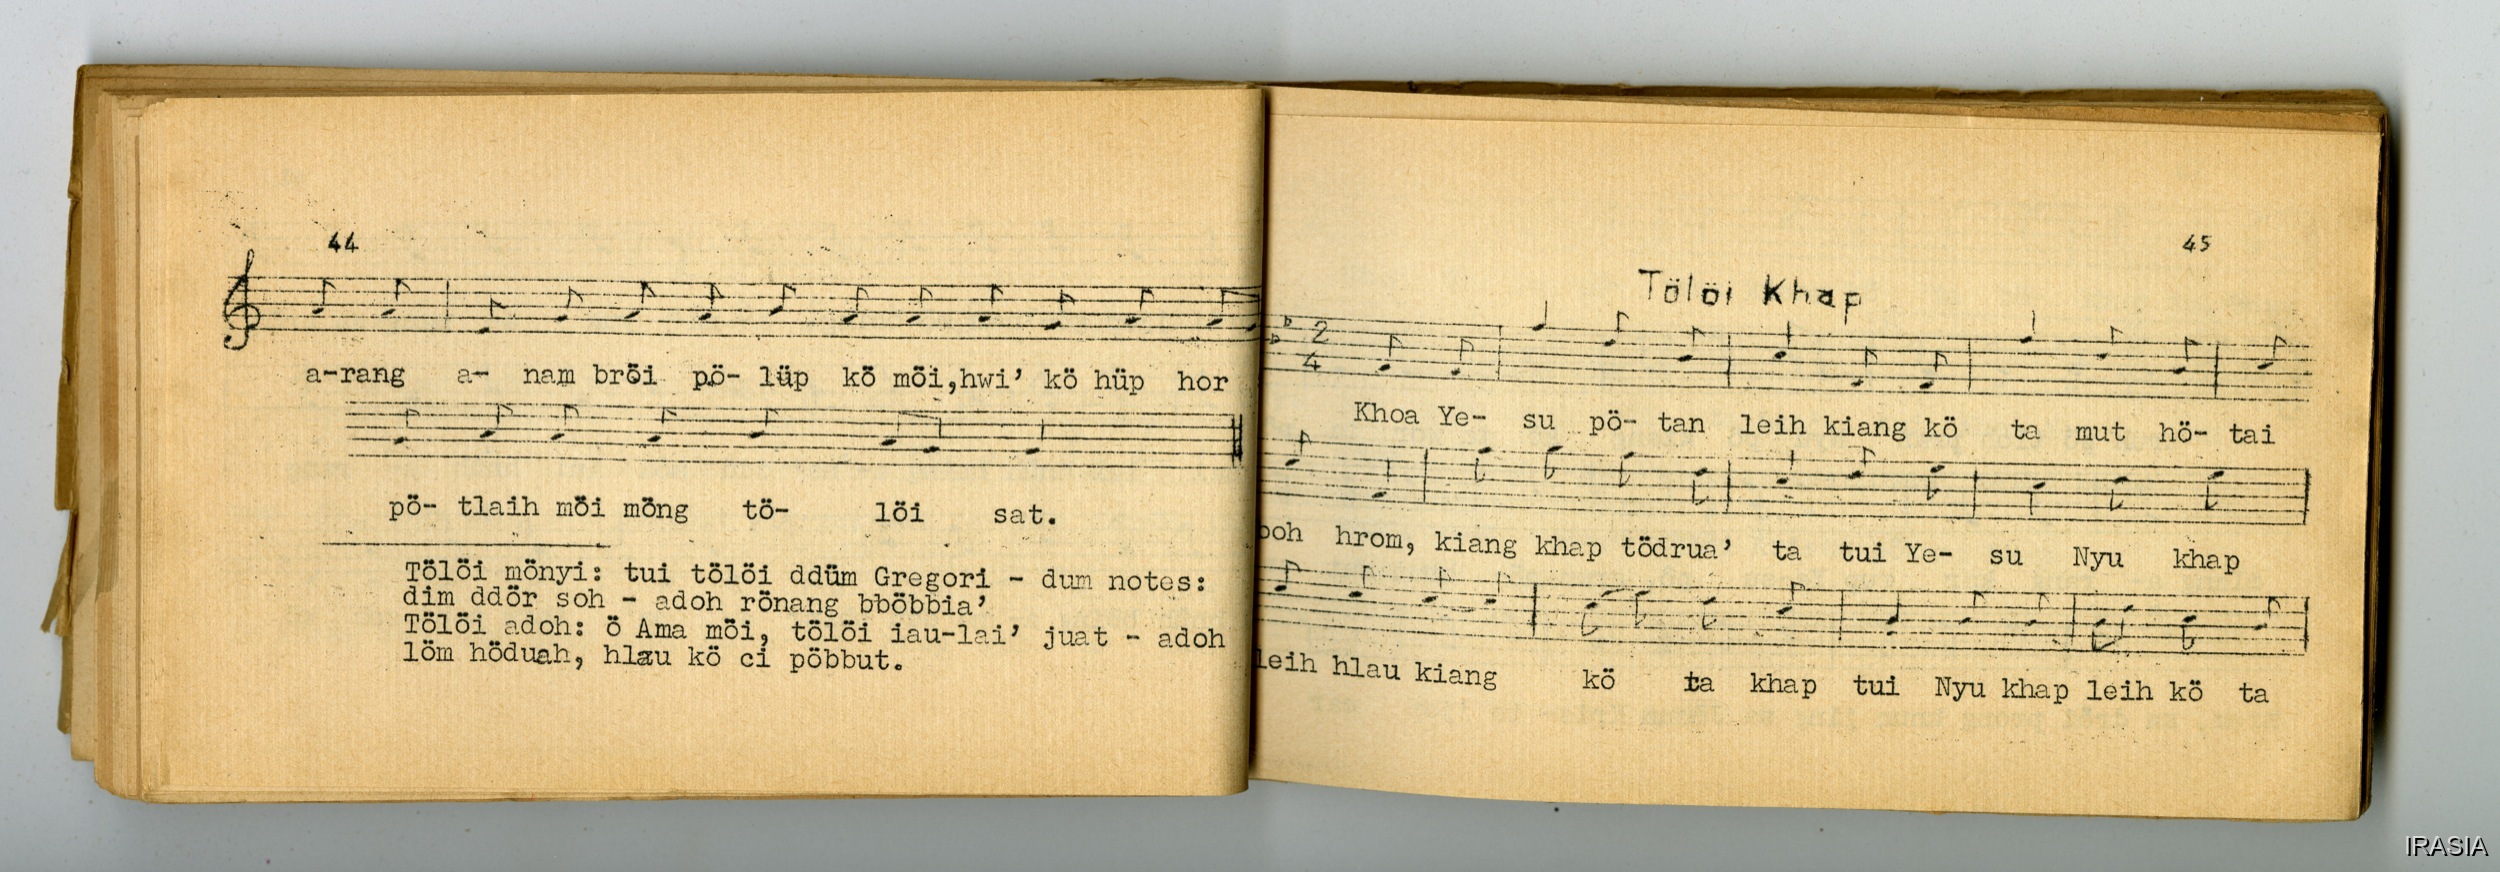 44
a-rang a- nam brŏi pö- lüp kŏ mŏi,hwi’ kö hüp hor
pö- tlaih mŏi mŏng tö- lŏi sat.
Tölŏi mŏnyi: tui tölŏi ddŭm Gregori - dum notes:
dim ddŏr soh - adoh rŏnang bbŏbbia’
Tölŏi adoh: ŏ Ama mŏi, tölŏi iau-lai’ juat - adoh
lŏm hŏduah, hlau kŏ ci pöbbut.
45
Tölöi Khap
2
4
Khoa Ye- su pö- tan leih kiang kö ta mut hö- tai
boh hrom, kiang khap tödrua’ ta tui Ye- su Nyu khap
leih hlau kiang kö ta khap tui Nyu khap leih kö ta
IRASIA